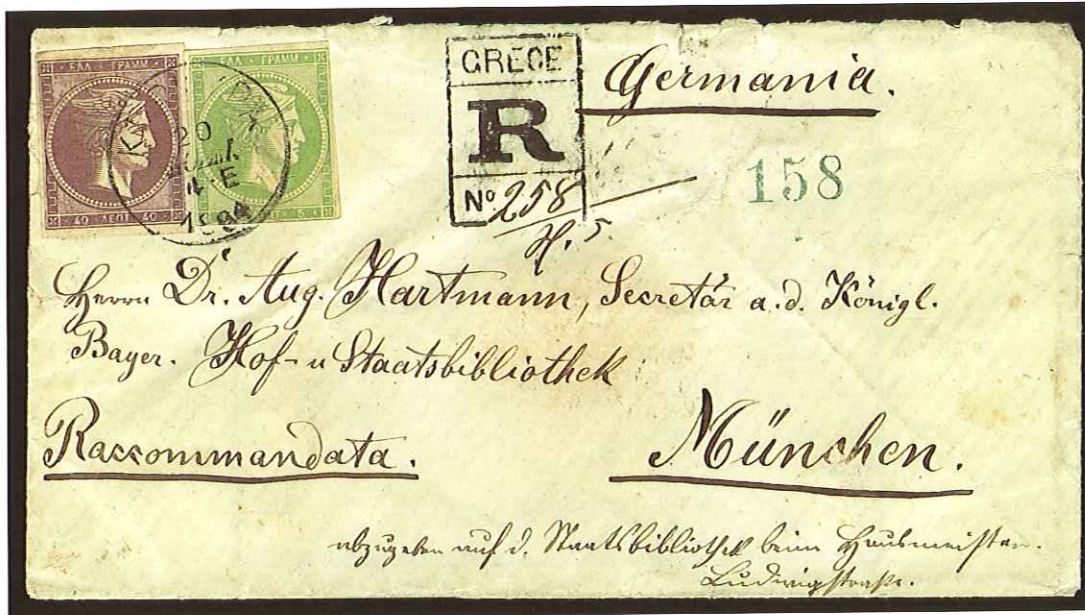 ΕΛΛ · ΓΡΑΜΜ
40 ΛΕΠΤ 40
ΕΛΛ · ΓΡΑΜΜ
5
20
GRECE
R
Nº 258
Germania.
158
Herrn Dr. Aug. Hartmann, Secretär a. d. Königl.
Bayer. Hof- u Staatsbibliothek
Raccommandata.
München.
abzugeben auf d. Staatsbibliothek beim Hausmeister.
Ludwigstraße.